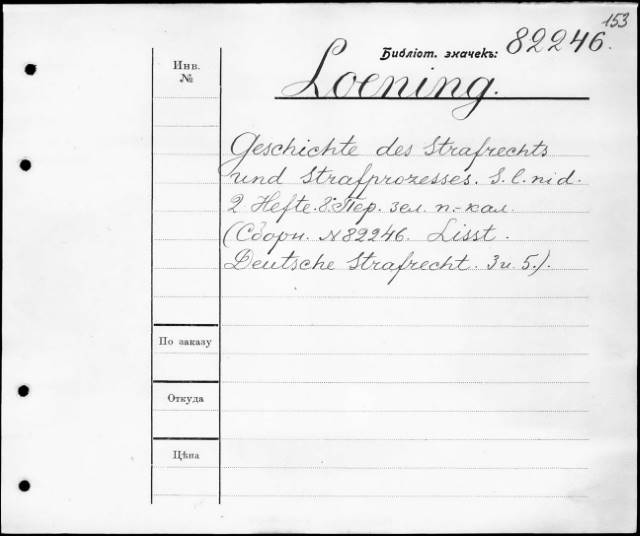 153
Библіот. значекъ: 82246.
Инв. №
Loening.
Geschichte des Strafrechts
und Strafprozesses. S. l. ni d.
2 Hefte. 8º Пер. зел. п.-кал.
(Сборн. №82246. Liszt.
Deutsche Strafrecht. 3 и 5.).
По заказу
Откуда
Цѣна